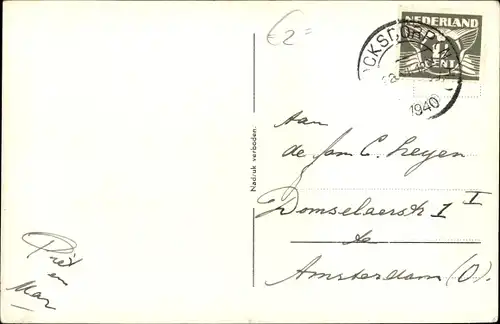 €2=
NEDERLAND
CENT
1940
aan
de fam C. Leyen
Domselaerstr 1 I
te
Amsterdam (O.)
Nadruk verboden.
Piet
en
Mar